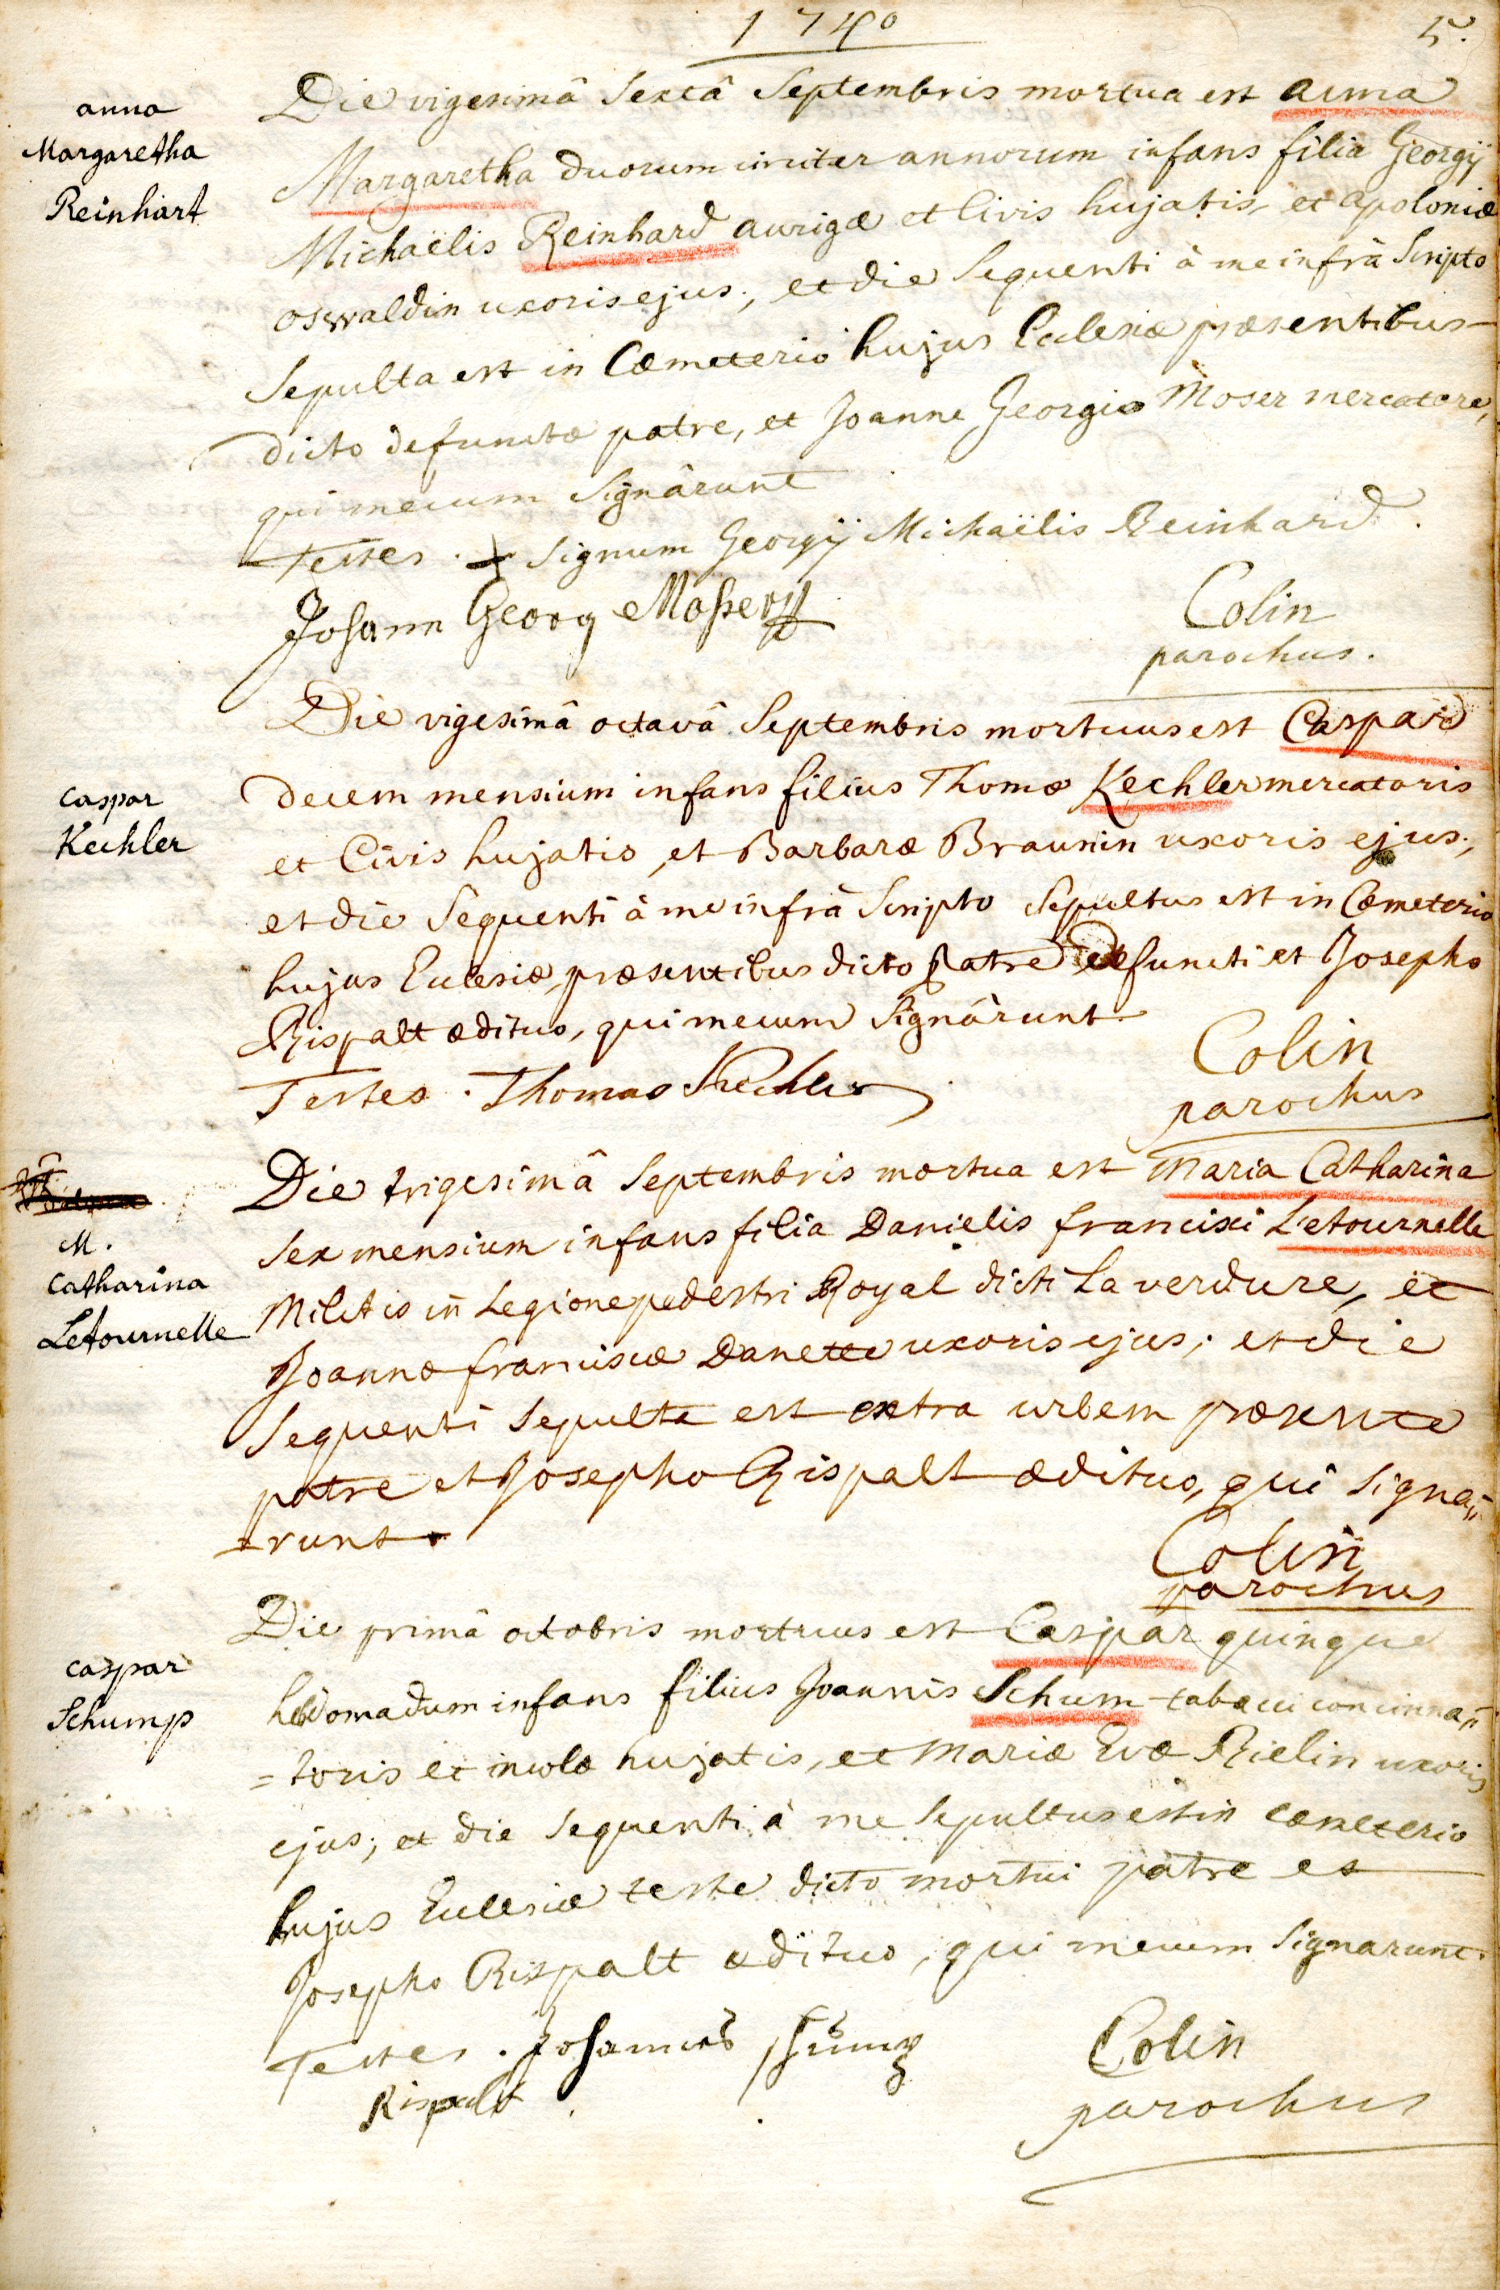 1740
5.
anna
Margaretha
Reinhart
Die vigesimâ Sextâ Septembris mortua est anna
Margaretha duorum circiter annorum infans filia Georgÿ
Michaëlis Reinhard aurigæ et Civis hujatis, et apoloniæ
oswaldin uxoris ejus; et die Sequenti à me infrà Scripto
Sepulta est in Cæmeterio hujus Ecclesiæ præsentibus
dicto defunctæ patre, et Joanne Georgio Moser mercatore,
qui mecum Signârunt
Testes . + Signum Georgÿ Michaëlis Reinhard .
Johann Georg Mosser
Colin
parochus.
Caspar
Kechler
Die vigesimâ octavâ Septembris mortuus est Caspar
decem mensium infans filius Thomæ Kechler mercatoris
et Civis hujatis, et Barbaræ Braunin uxoris ejus;
et die Sequenti à me infrà Scripto Sepultus est in Cæmeterio
hujus Ecclesiæ, præsentibus dicto patre defuncti et Josepho
Rispalt ædituo, qui mecum Signârunt
Testes . Thomas Kechler
Colin
parochus
M.
Catharina
Letournelle
Die trigesimâ Septembris mortua est Maria Catharina
Sex mensium infans filia Danielis francisci Letournelle
Militis in Legione pedestri Royal dicti La verdure, et
Joannæ franciscæ Danette uxoris ejus; et die
Sequenti Sepulta est extra urbem præsente
patre et Josepho Rispalt ædituo, qui Signa„
-runt.
Colin
parochus
Caspar
Schump
Die primâ octobris mortuus est Caspar quinque
hebdomadum infans filius Joannis Schum tabaci concinna„
= toris et incolæ hujatis, et Mariæ Evæ Rielin uxoris
ejus; et die Sequenti à me Sepultus est in cæmeterio
hujus Ecclesiæ teste dicto mortui patre et
Josepho Rispalt ædituo, qui mecum Signarunt.
Testes . Johannes
Rispalt
Colin
parochus